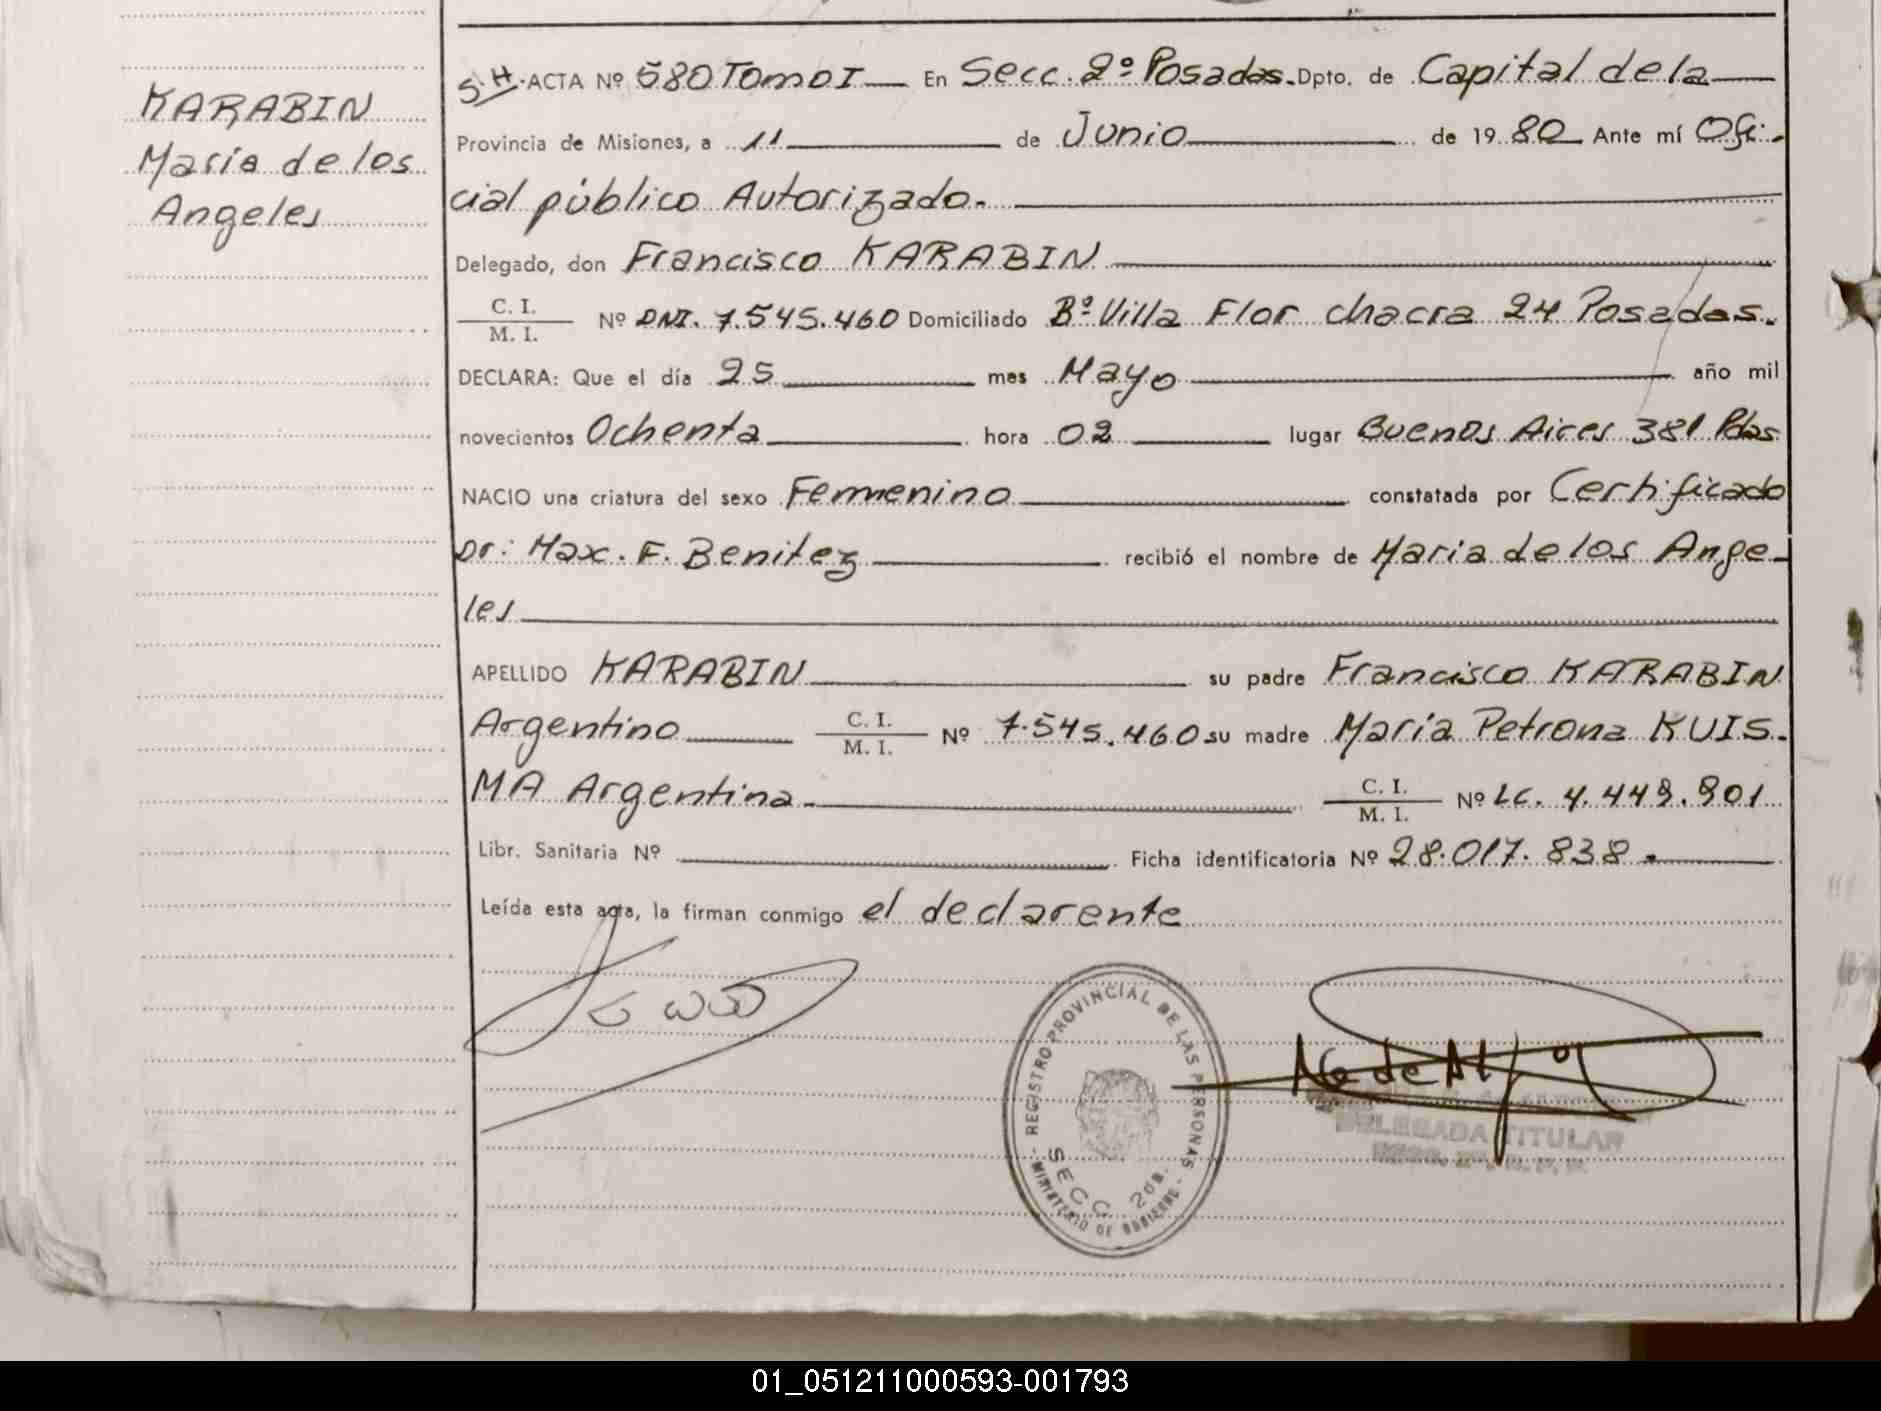 KARABIN
Maria de los
Angeles
S.H. ACTA Nº 580 Tomo I En Secc. 2º Posadas. Dpto. de Capital de la
Provincia de Misiones, a 11 de Junio de 1980 Ante mí Ofi-
cial público Autorizado.
Delegado, don Francisco KARABIN
C. I.
M. I. Nº DNI. 7.545.460 Domiciliado Bº Villa Flor chacra 24 Posadas.
DECLARA: Que el día 25 mes Mayo año mil
novecientos Ochenta hora 02 lugar Buenos Aires 381 Pdas
NACIO una criatura del sexo Femenino constatada por Certificado
Dr: Max. F. Benitez recibió el nombre de Maria de los Ange-
les
APELLIDO KARABIN su padre Francisco KARABIN
Argentino C. I.
M. I. Nº 7.545.460 su madre María Petrona KUIS-
MA Argentina. C. I.
M. I. Nº LC. 4.449.901
Libr. Sanitaria Nº Ficha identificatoria Nº 28.017.838.
Leída esta acta, la firman conmigo el declarente
REGISTRO PROVINCIAL DE LAS PERSONAS
SECC. 2da.
- MINISTERIO DE GOBIERNO -
DELEGADA TITULAR
01_051211000593-001793